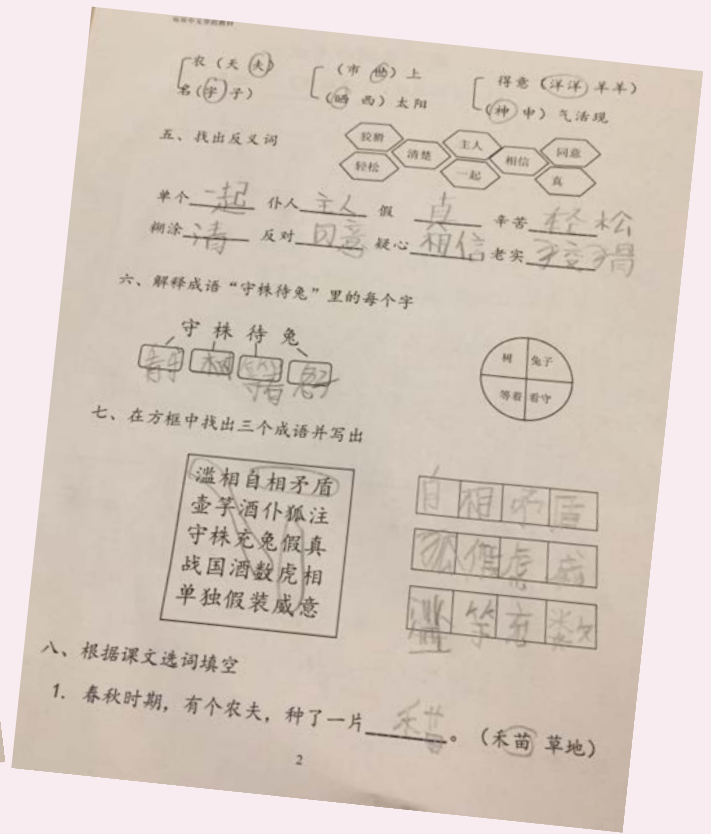 农（天 夫） （市 世）上 得意（洋洋 羊羊）
名（字 子） （晒 西）太阳 （神 申）气活现
五、找出反义词
狡猾 清楚 主人 相信 同意
轻松 一起 真
单个 一起 仆人 主人 假 真 辛苦 轻松
糊涂 清 反对 同意 疑心 相信 老实 狡猾
六、解释成语“守株待兔”里的每个字
守 株 待 兔
树 兔子
等着 看守
七、在方框中找出三个成语并写出
滥相自相矛盾
壶竽酒仆狐注
守株充兔假真
战国酒数虎相
单独假装威意
自相矛盾
狐假虎威
滥竽充数
八、根据课文选词填空
1. 春秋时期，有个农夫，种了一片禾苗。（禾苗 草地）
2